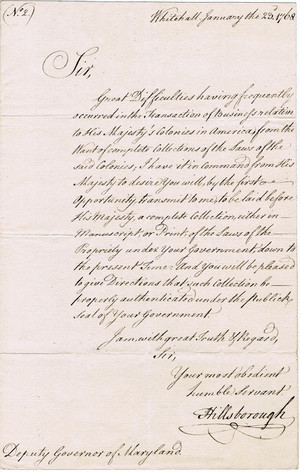 (No. 2.)
Whitehall January the 23d. 1768
Sir,
Great Difficulties having frequently
occurred in the Transaction of Business relative
to His Majesty's Colonies in America, from the
Want of complete Collections of the Laws of the
said Colonies; I have it in command from His
Majesty to desire you will, by the first
Opportunity, transmit to me, to be laid before
His Majesty, a complete Collection, either in
Manuscript or Print, of the Laws of the
Propriety under Your Government down to
the present Time: And You will be pleased
to give Directions that such Collection be
properly authenticated under the publick
Seal of Your Government.
I am, with great Truth & Regard,
Sir,
Your most obedient
humble Servant
Hillsborough
Deputy Governor of Maryland